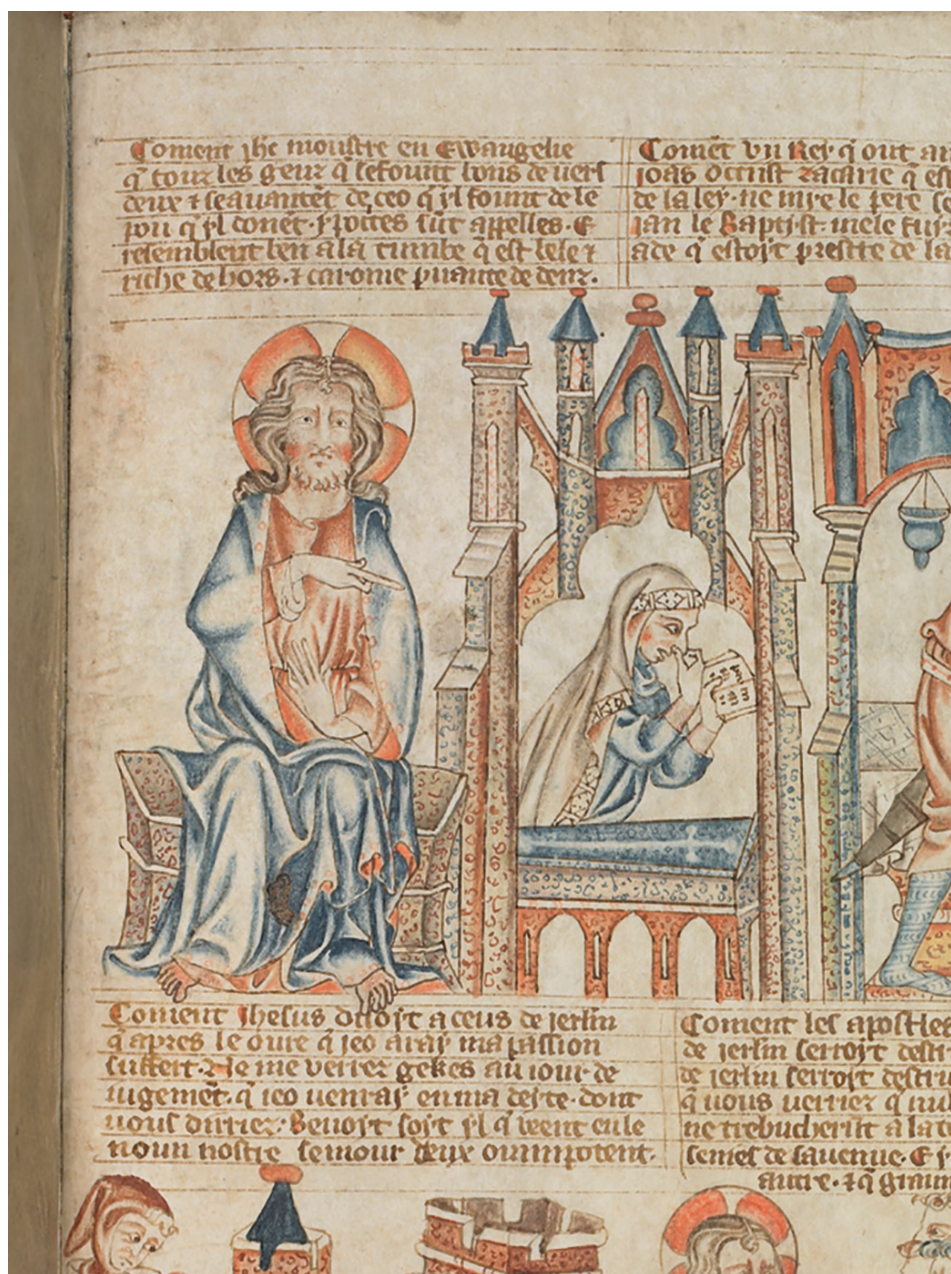 Coment ihc moustre en Ewangelie
q touz les genz q sefount bons de vers
deux & seauancēt de ceo q yl fount de le
pou q yl donēt. ypocÿtes sūt appelles. E
resemblent ben a la tumbe q est bele &
riche de hors. & caronie puante de denz.
Comēt vn Rey q out
ioas occist zacarie q
de la ley. ne mye le pere
Jan le Baptist. mele
q estoyt prestre de la
Coment Jhesus disoyt a ceus de jerlm
q apres le oure q jeo aray ma passion
suffert. Ne me verrez gekes au iour de
iugemēt. q ieo uenray en ma deyte. dont
uous dirriez. Benoyt soyt yl q ueent en le
noun nostre seinour deux omnipotent.
Coment les apostle
de jerlm serroyt
de jerlm serroyt
q uous uerriez q
ne trebucherūt a la
semes de sauenue. E
autre. & q